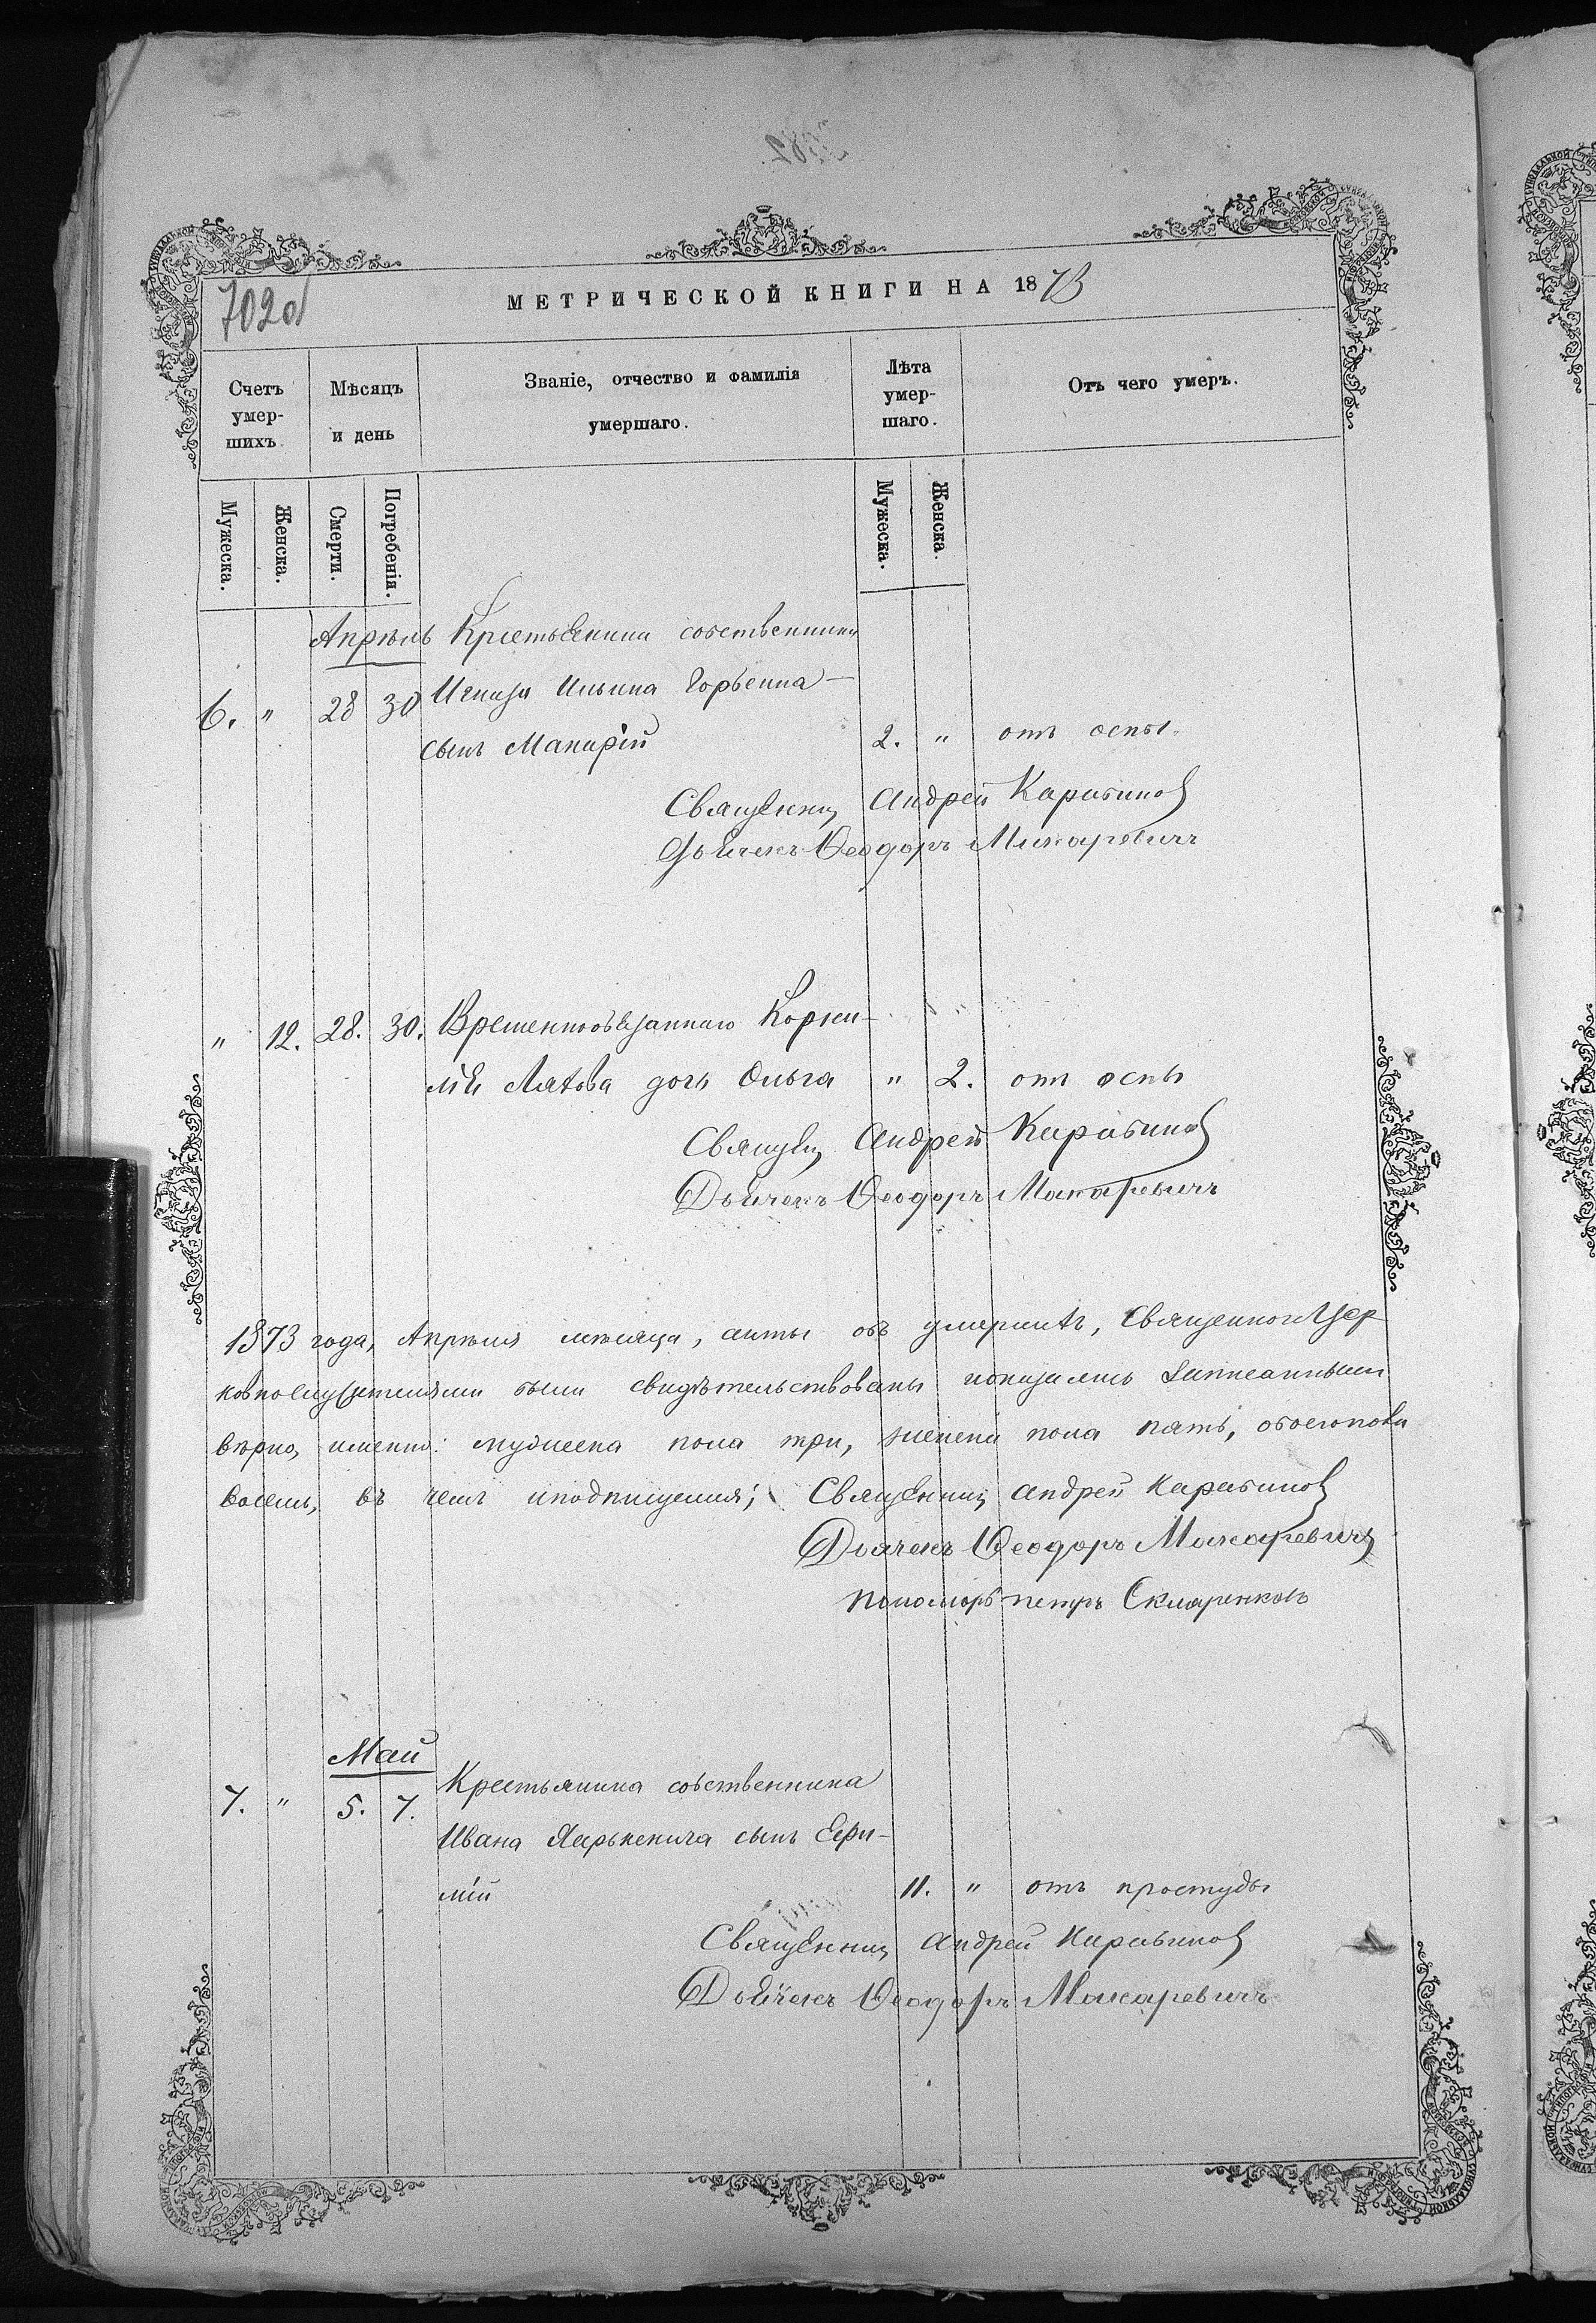 702об
МЕТРИЧЕСКОЙ КНИГИ НА 1873
Счетъ умершихъ.
Мѣсяцъ и день
Званіе, отчество и фамилія умершаго.
Лѣта умершаго.
Отъ чего умеръ.
Мужеска. Женска. Смерти. Погребенія. Мужеска. Женска.
Апрѣль Крестьянина собственника
6. " 28 30 Ильина
сынъ Макарій 2. " отъ оспы.
Священникъ Андрей Карабиновъ
Дьячекъ Ѳеодоръ Макаревичъ
" 12. 28. 30. Временнообязаннаго Корни-
лія дочь Ольга " 2. отъ оспы
Священникъ Андрей Карабиновъ
Дьячекъ Ѳеодоръ Макаревичъ
1873 года, Апрѣля мѣсяца, акты объ умершихъ, Священноцер
ковнослужителями были свидѣтельствованы и оказались записанными
вѣрно, именно: мужеска пола три, женска пола пять, обоего пола
восемь, въ чемъ и подпишемся; Священникъ Андрей Карабиновъ
Дьячекъ Ѳеодоръ Макаревичъ
Пономарь Петръ Скляренковъ
Май
7. " 5. 7. Крестьянина собственника
Ивана сынъ Ефи-
мій 11. " отъ простуды
Священникъ Андрей Карабиновъ
Дьячекъ Ѳеодоръ Макаревичъ